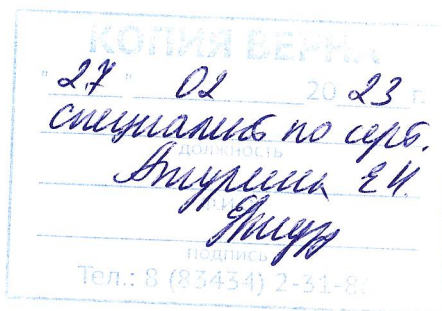 КОПИЯ ВЕРНА
"27" 02 2023 г.
специалист по серт.
должность
Е.Н.
подпись
Тел.: 8 (83434) 2-31-8